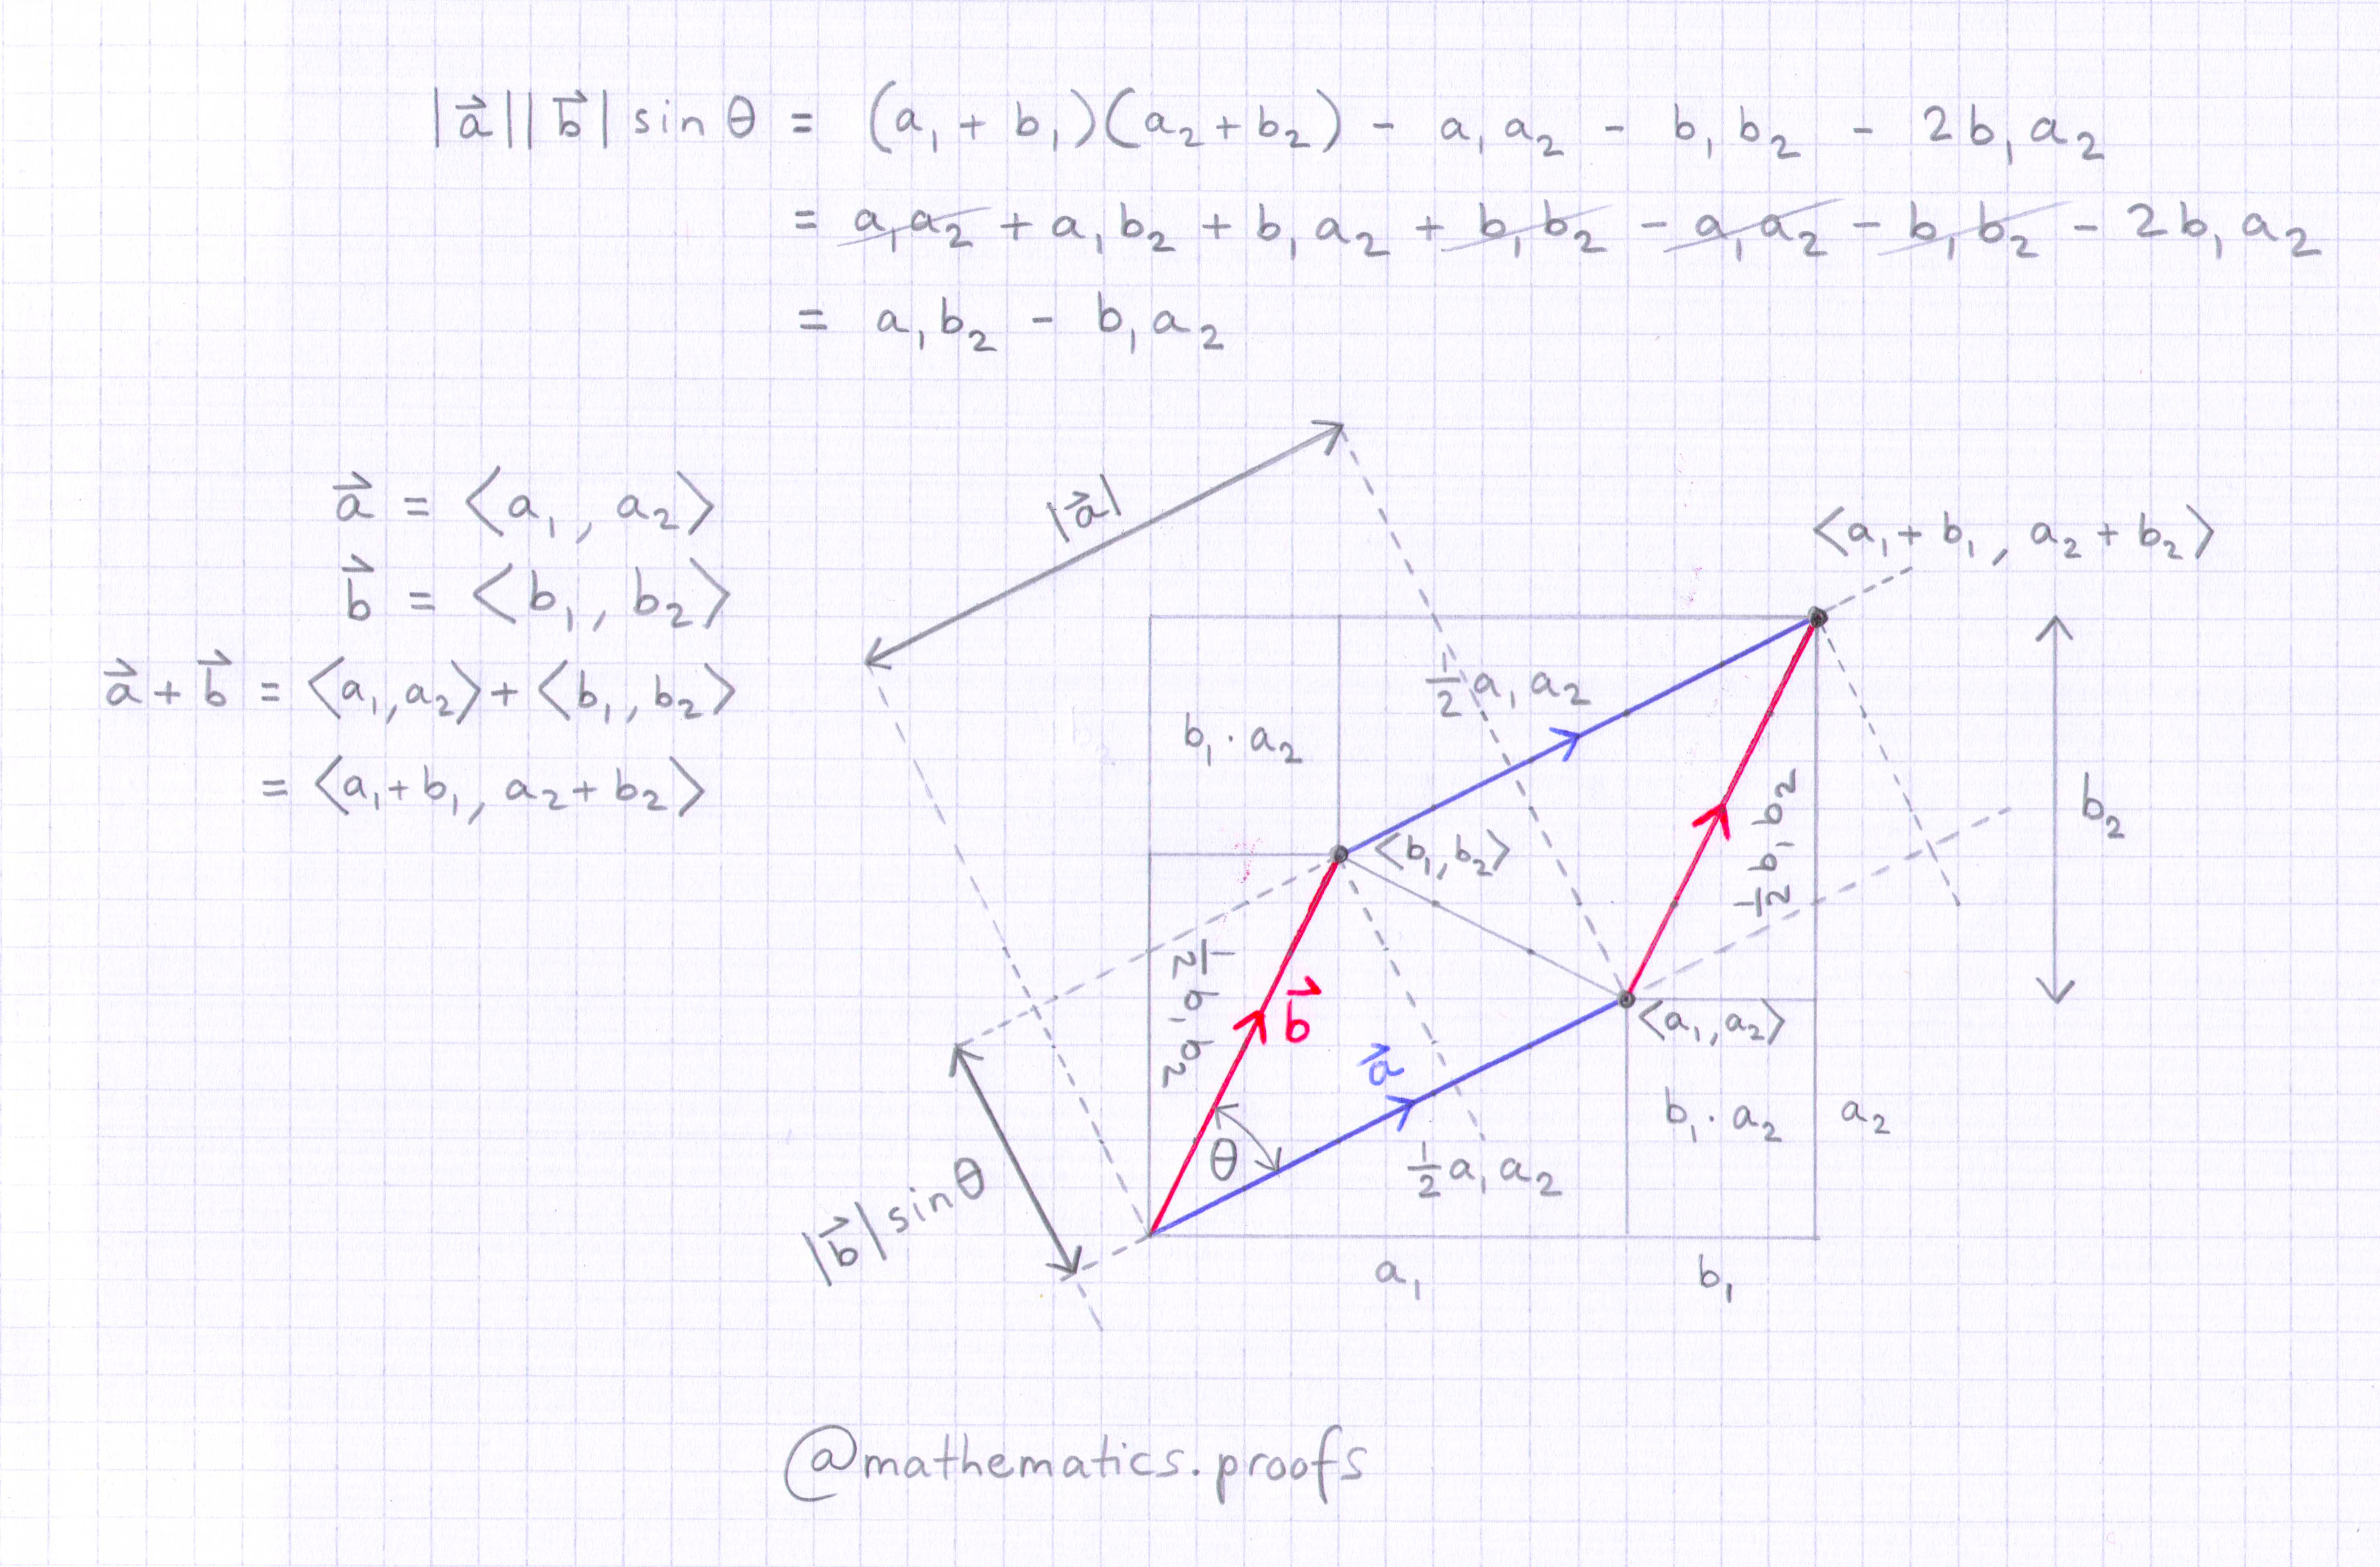 |a⃗||b⃗| sin θ = (a₁ + b₁)(a₂ + b₂) - a₁a₂ - b₁b₂ - 2b₁a₂
= a₁a₂ + a₁b₂ + b₁a₂ + b₁b₂ - a₁a₂ - b₁b₂ - 2b₁a₂
= a₁b₂ - b₁a₂
a⃗ = ⟨a₁, a₂⟩
b⃗ = ⟨b₁, b₂⟩
a⃗ + b⃗ = ⟨a₁,a₂⟩ + ⟨b₁,b₂⟩
= ⟨a₁+b₁, a₂+b₂⟩
|a⃗|
⟨a₁+b₁, a₂+b₂⟩
½a₁a₂
b₁·a₂
b₂
½b₁b₂
⟨b₁,b₂⟩
½b₁b₂
b⃗
⟨a₁,a₂⟩
a⃗
b₁·a₂
a₂
θ
½a₁a₂
|b⃗| sin θ
a₁
b₁
@mathematics.proofs